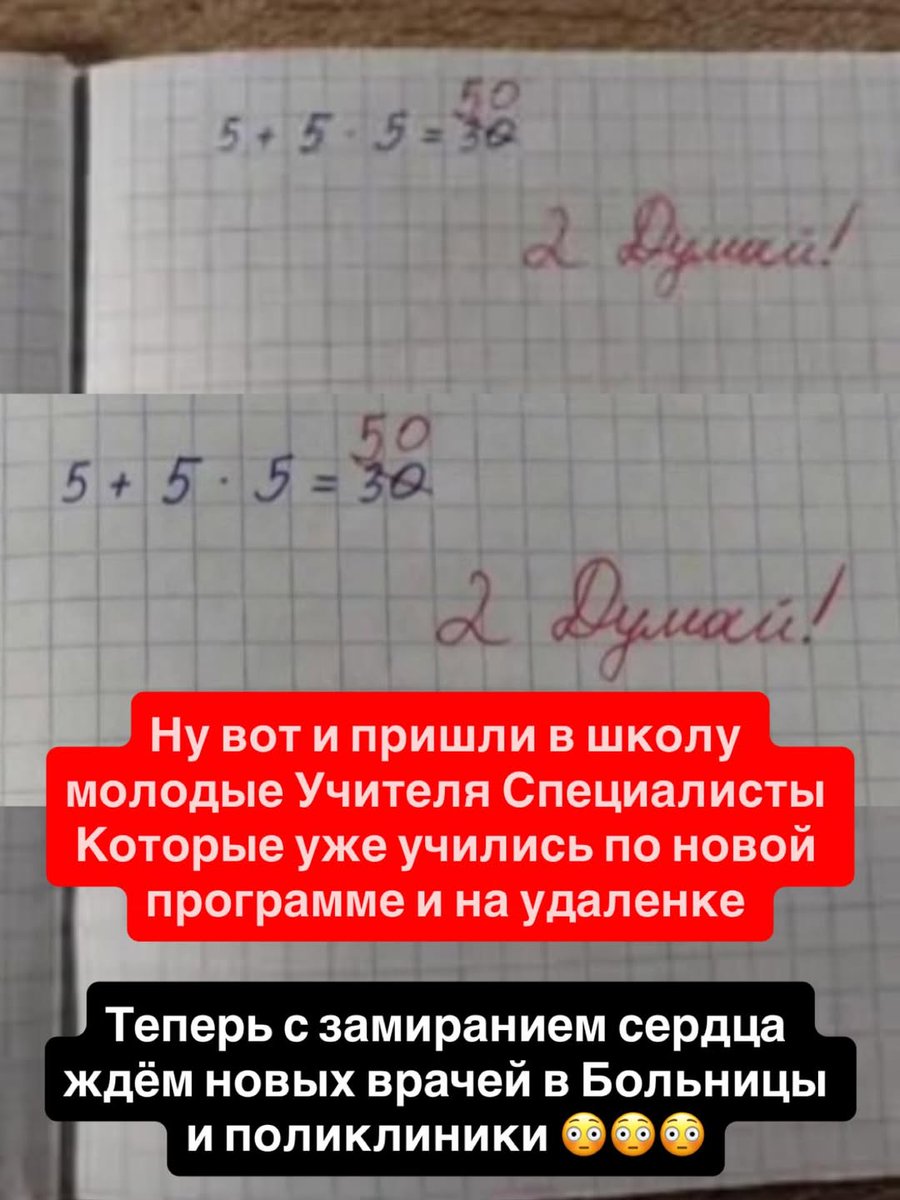 50
5 + 5 · 5 = 30
2 Думай!
50
5 + 5 · 5 = 30
2 Думай!
Ну вот и пришли в школу
молодые Учителя Специалисты
Которые уже учились по новой
программе и на удаленке
Теперь с замиранием сердца
ждём новых врачей в Больницы
и поликлиники 😳😳😳